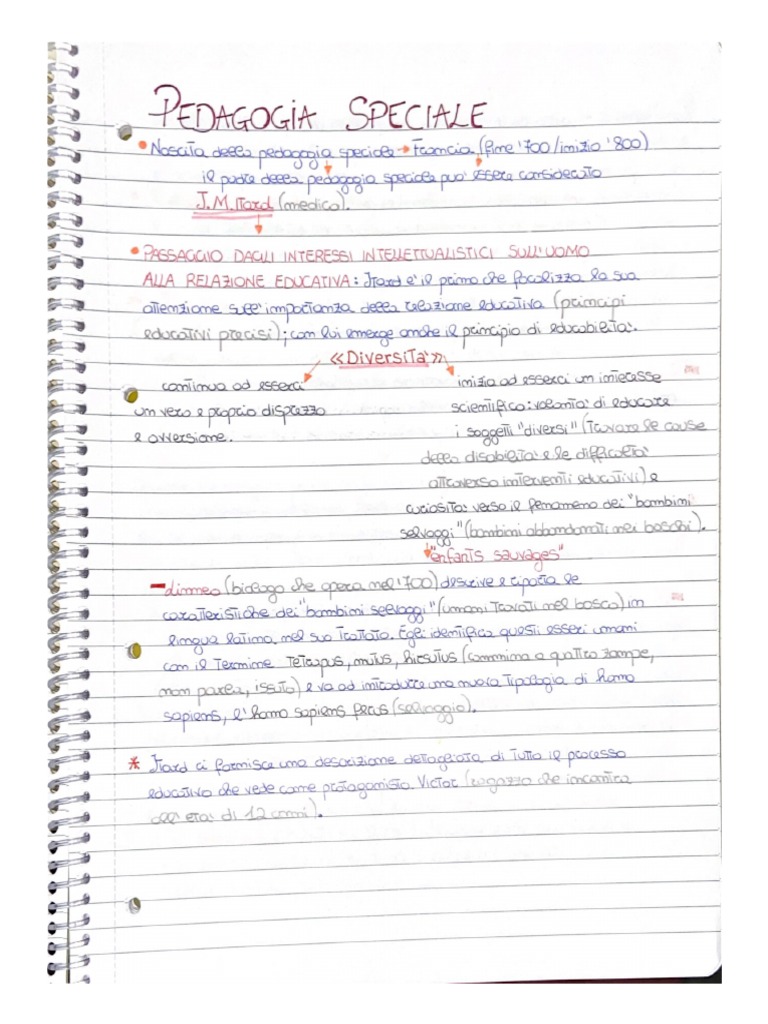 PEDAGOGIA SPECIALE
• Nascita della pedagogia speciale → Francia (fine '700/inizio '800)
il padre della pedagogia speciale può essere considerato
J.M. Itard (medico).
• PASSAGGIO DAGLI INTERESSI INTELLETTUALISTICI SULL'UOMO
ALLA RELAZIONE EDUCATIVA: Itard è il primo che focalizza la sua
attenzione sull'importanza della relazione educativa (principi
educativi precisi); con lui emerge anche il principio di educabilità.
«Diversità»
continua ad esserci
un vero e proprio disprezzo
e avversione.
inizia ad esserci un interesse
scientifico: volontà di educare
i soggetti "diversi" (trovare le cause
della disabilità e le difficoltà
attraverso interventi educativi) e
curiosità verso il fenomeno dei "bambini
selvaggi" (bambini abbandonati nei boschi).
"enfants sauvages"
- Linneo (biologo che opera nel '700) descrive e riporta le
caratteristiche dei "bambini selvaggi" (umani trovati nel bosco) in
lingua latina nel suo trattato. Egli identifica questi esseri umani
con il termine tetrapus, mutus, hirsutus (cammina a quattro zampe,
non parla, issuto) e va ad introdurre una nuova tipologia di homo
sapiens, l'homo sapiens ferus (selvaggio).
* Itard ci fornisce una descrizione dettagliata di tutto il processo
educativo che vede come protagonista Victor (ragazzo che incontra
all'età di 12 anni).